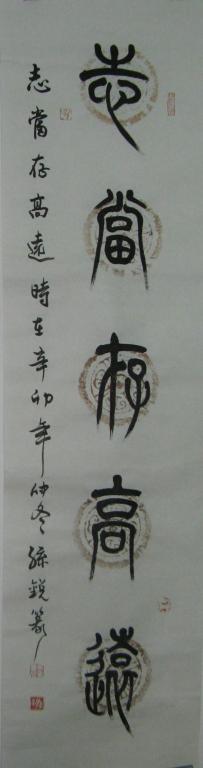 志當存高遠
志當存高遠時在辛卯年仲冬孫銳篆